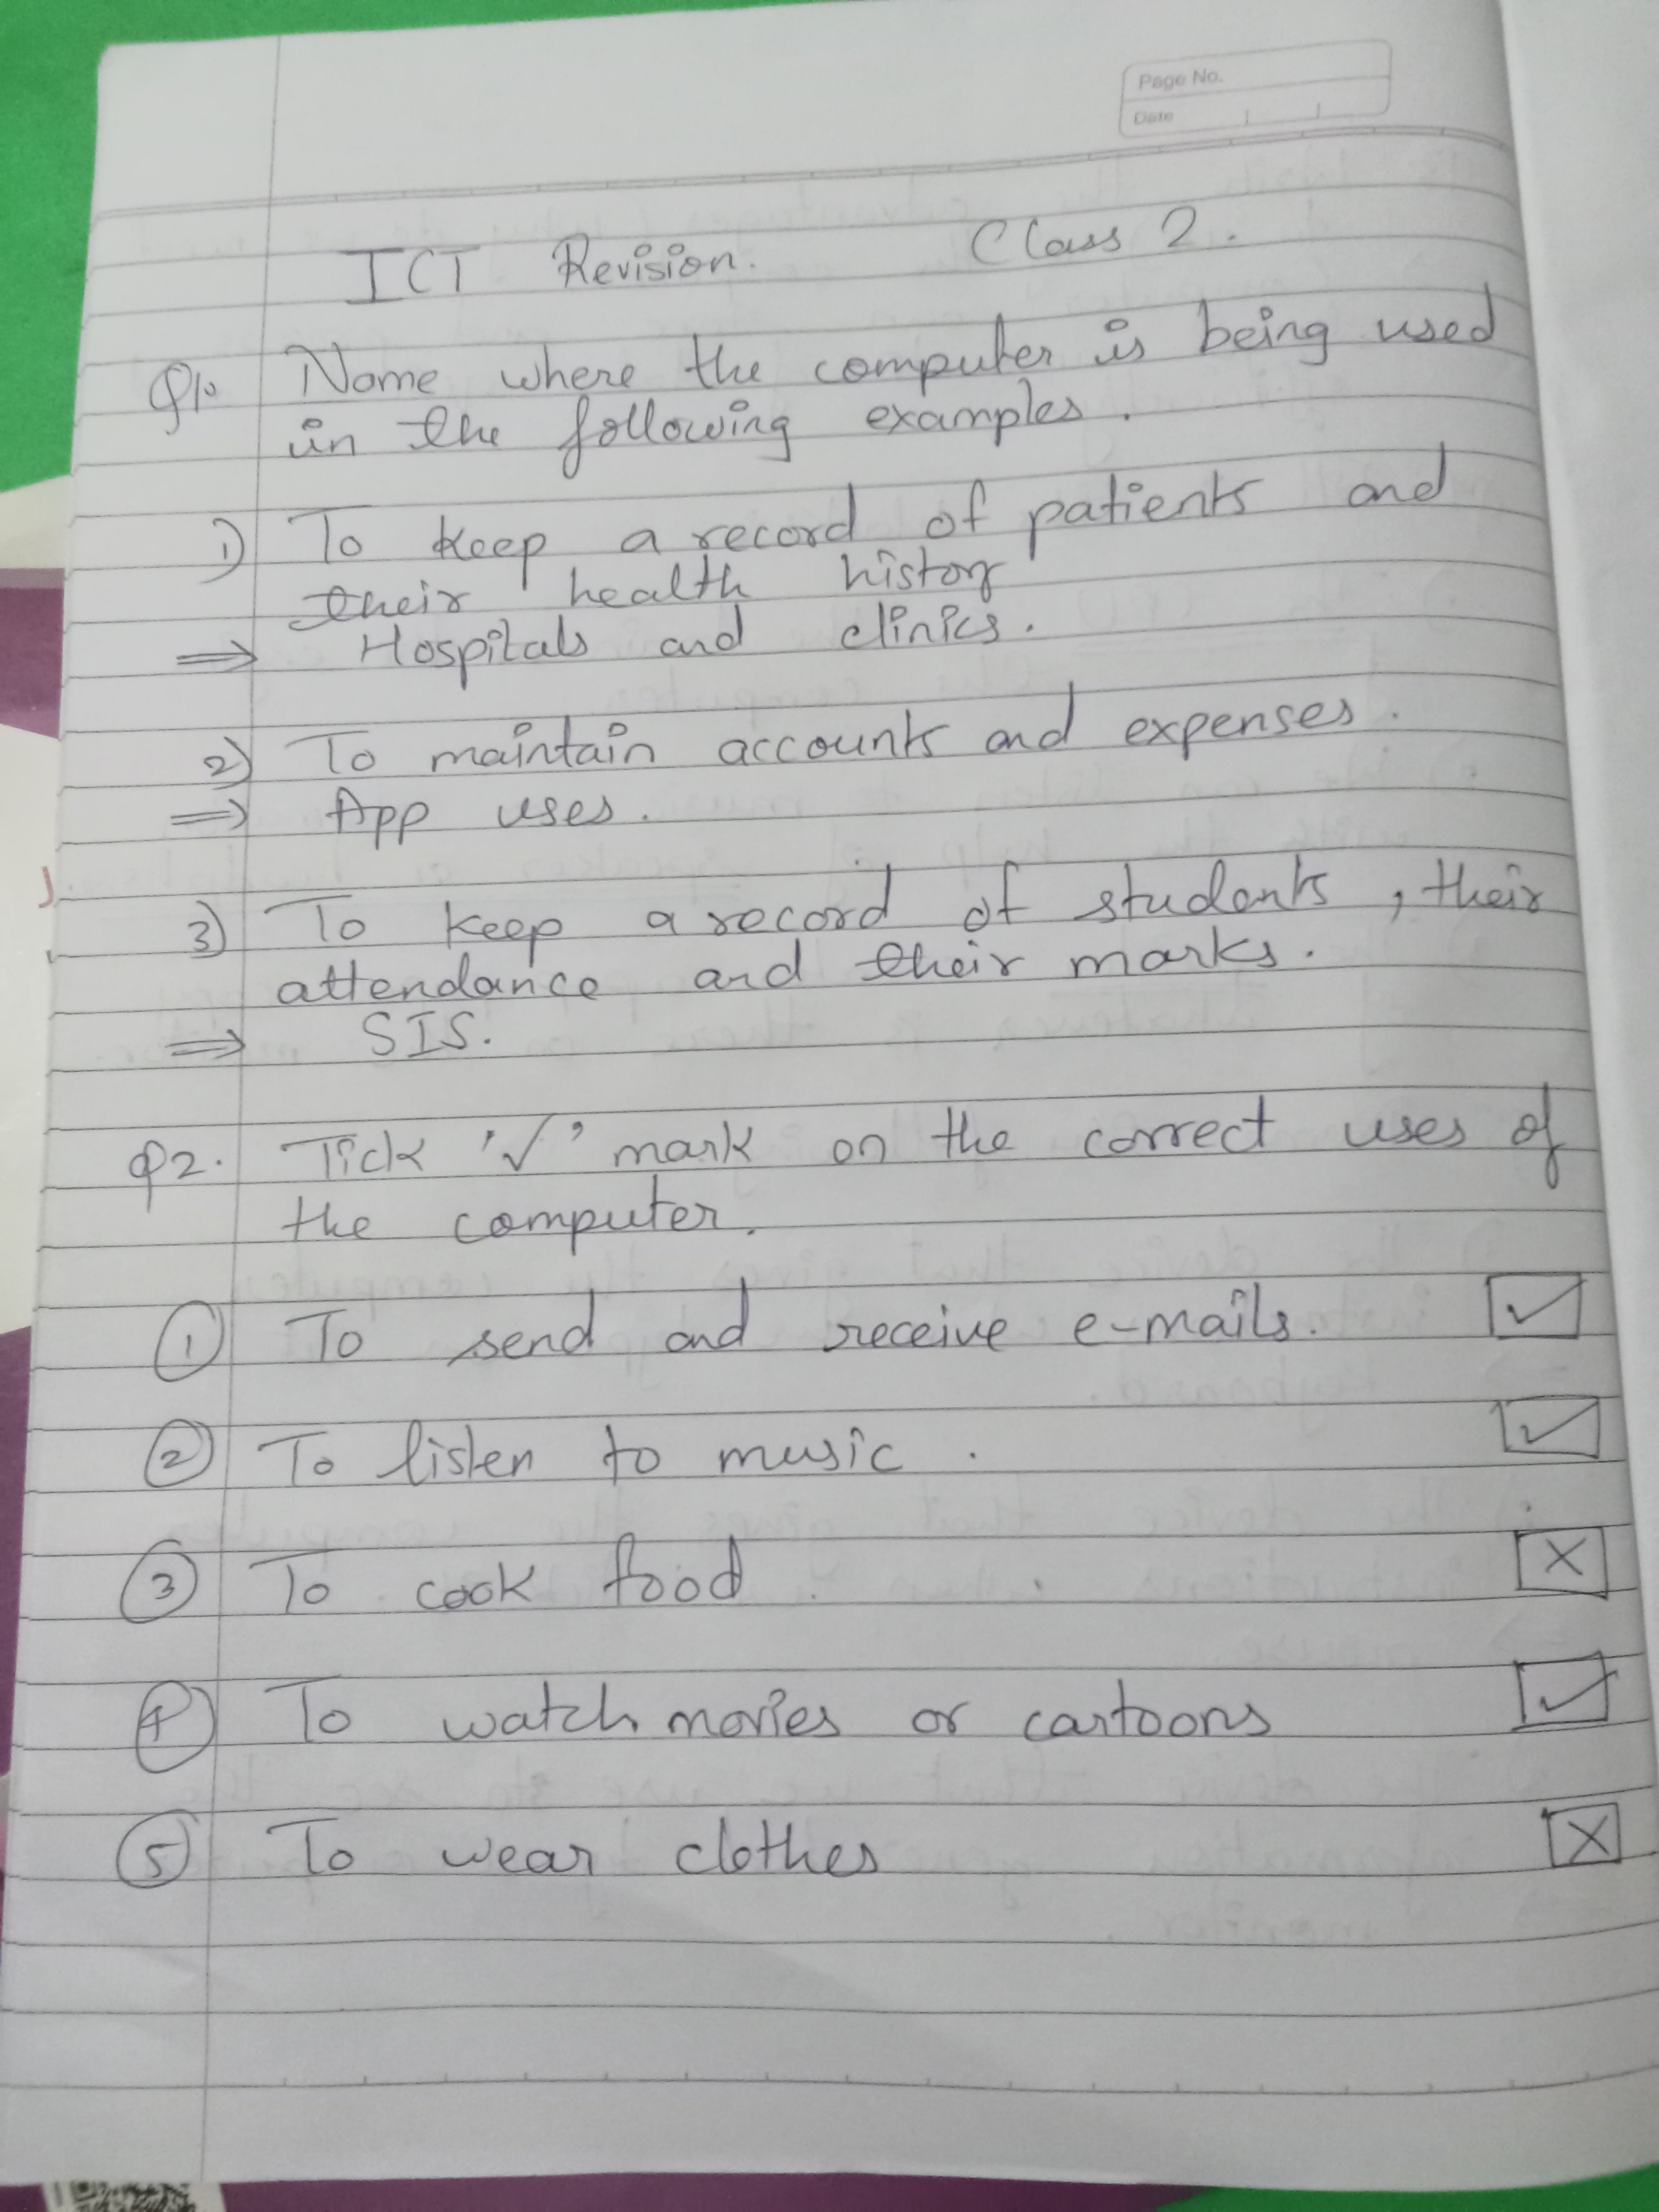 Page No.
Date
ICT Revision. Class 2.
Q1. Name where the computer is being used
in the following examples.
1) To keep a record of patients and
their health history
⇒ Hospitals and clinics.
2) To maintain accounts and expenses.
⇒ App uses.
3) To keep a record of students, their
attendance and their marks.
⇒ SIS.
Q2. Tick '✓' mark on the correct uses of
the computer.
1 To send and receive e-mails. ✓
2 To listen to music. ✓
3 To cook food. X
4 To watch movies or cartoons ✓
5 To wear clothes X